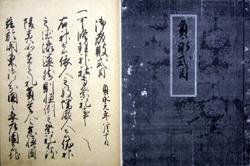 貞永式目
御成敗式目
貞永元年八月日
一可修理神社専祭祀事
右神者依人之敬増威人者依神
之徳添運然則恒例之祭祀不致
陵夷如在之礼奠
於関東御分国々并庄園者